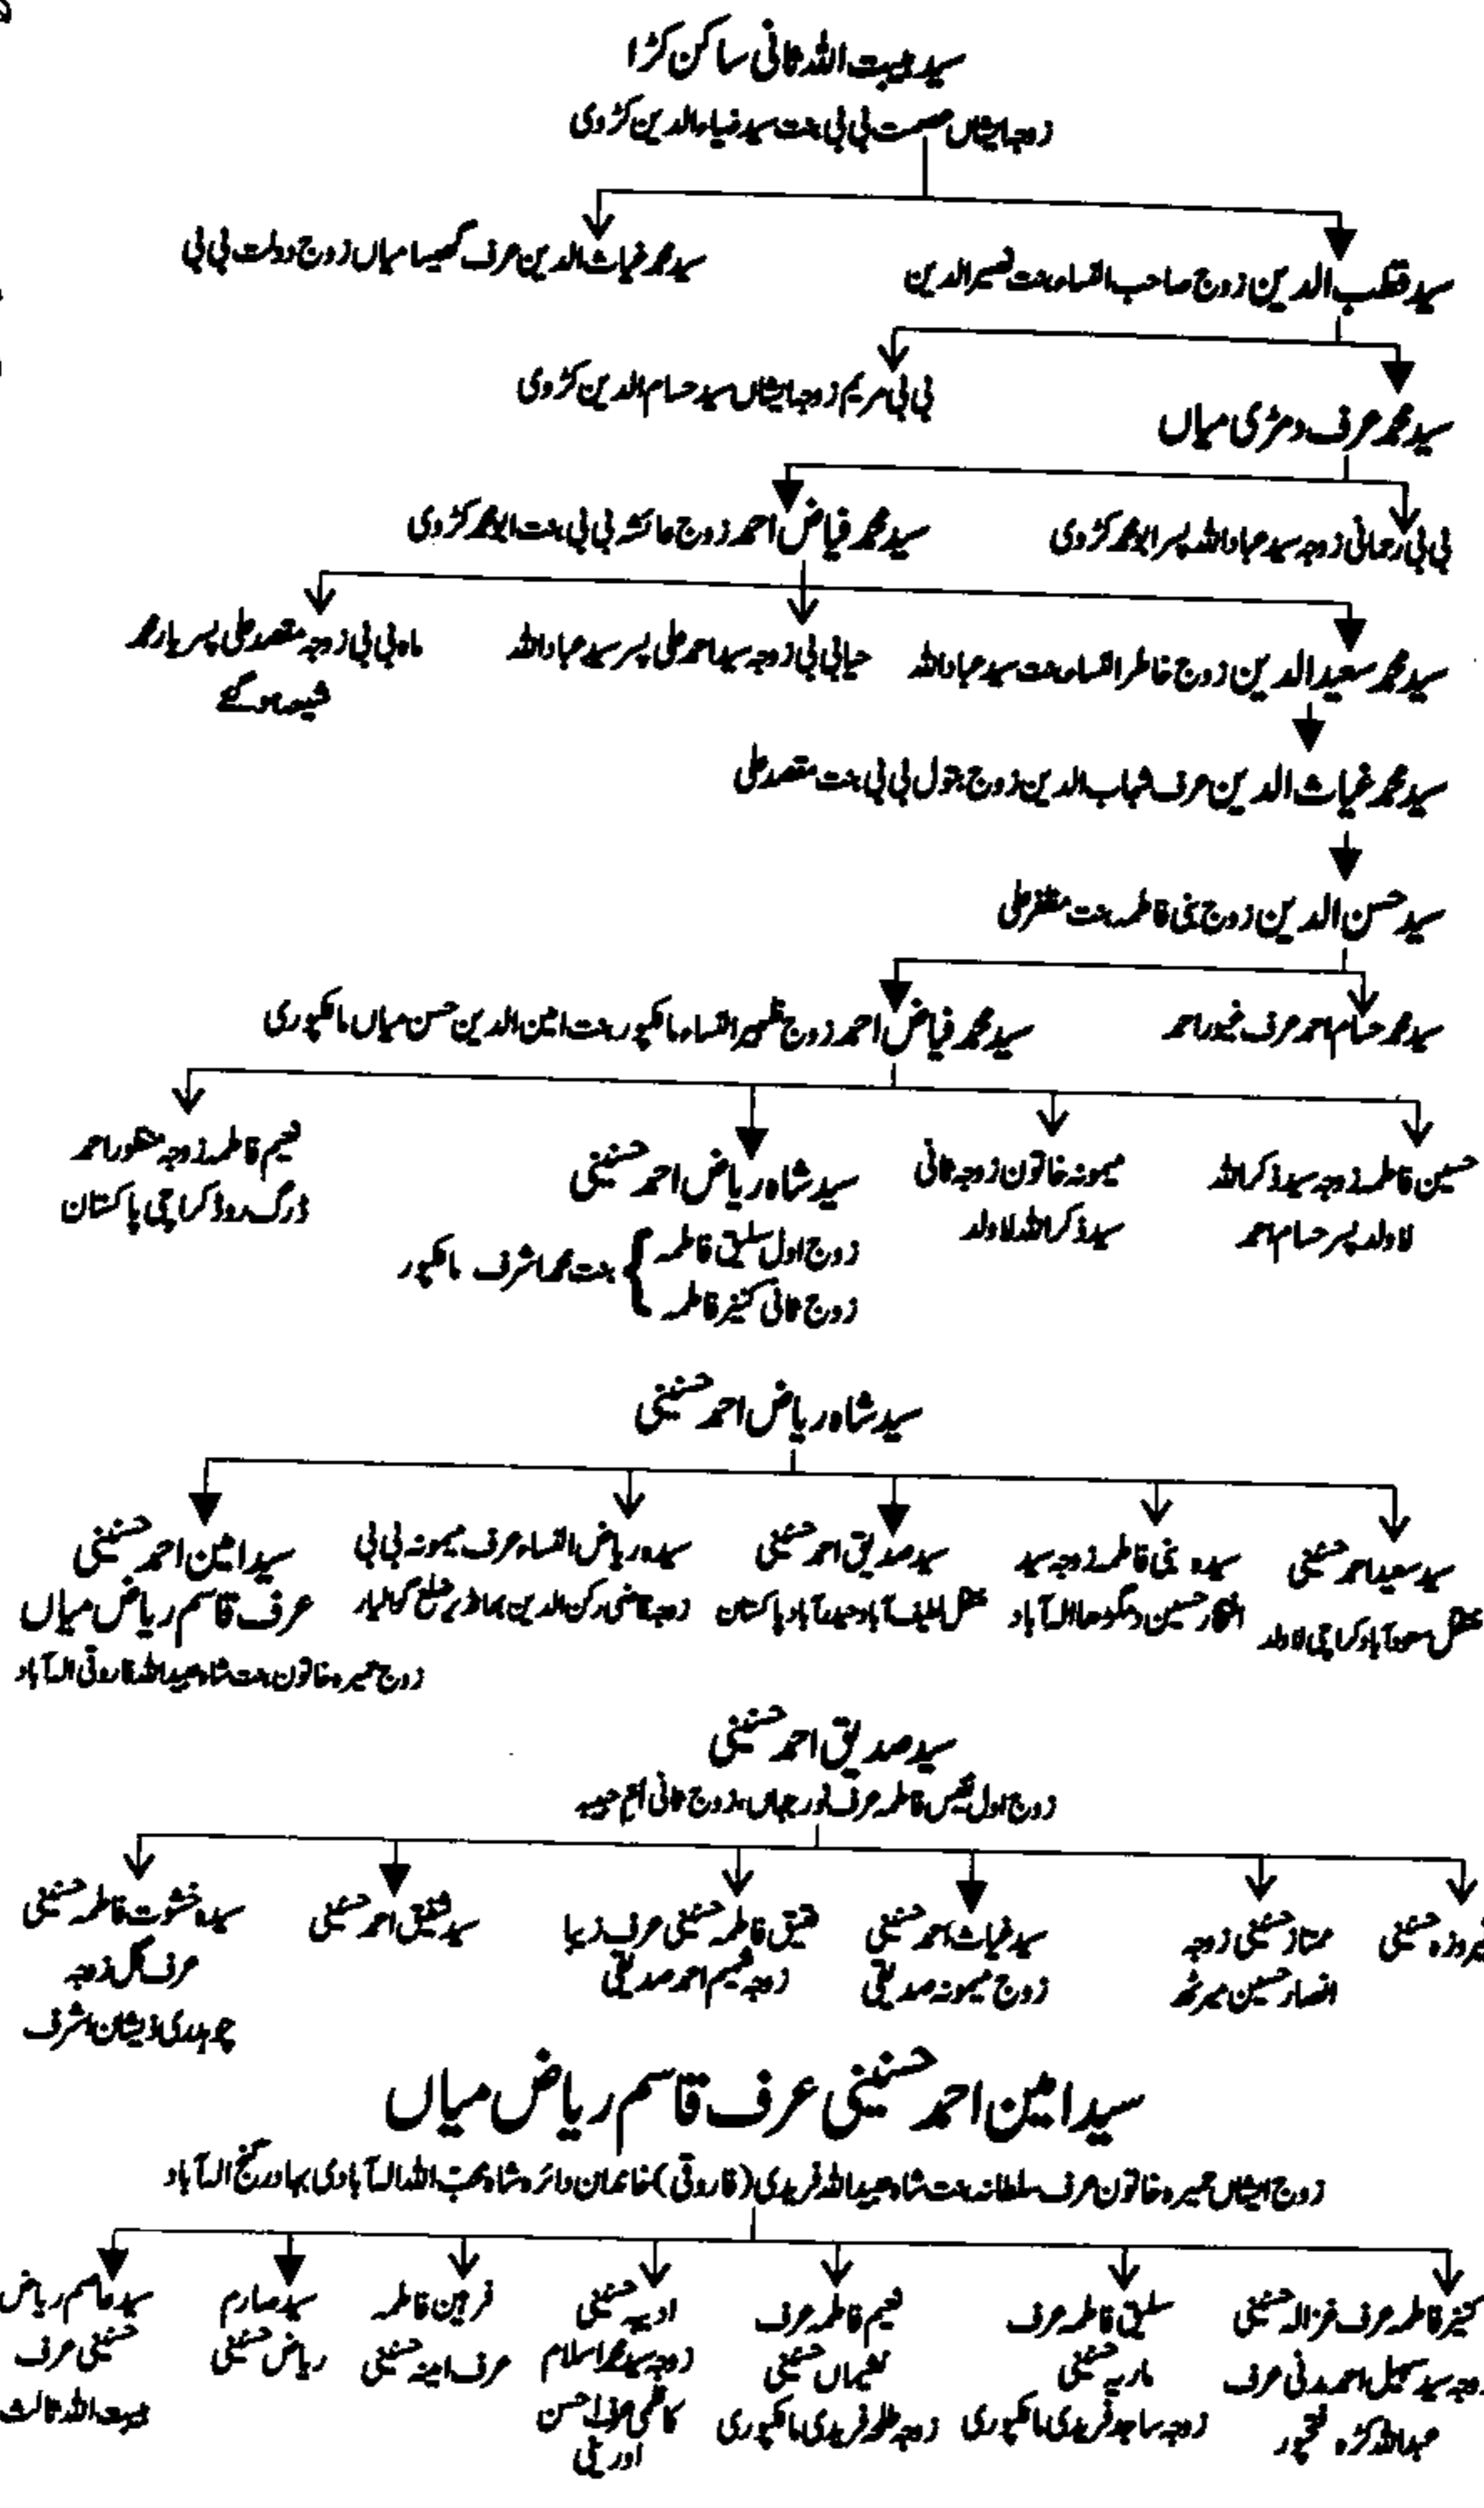 سید ہیبت اللہ ثانی ساکن کڑا
زوجہ ایشاں عصمت بی بی بنت سید ضیاء الدین کڑوی
سید قطب الدین زوج صاحب النساء بنت نصیر الدین
سید محمد غیاث الدین عرف گھیسا میاں زوج دولت بی بی
سید محمد عرف دمڑی میاں
بی بی مریم زوجہ ایشاں سید حسام الدین کڑوی
بی بی رحمانی زوجہ سید عباد اللہ پسر ابو محمد کڑوی
سید محمد فیاض احمد زوج عائشہ بی بی بنت ابو محمد کڑوی
سید محمد سعید الدین زوج فاطر النساء بنت سید عباد اللہ
حیا بی بی زوجہ سید احمد علی پسر سید عباد اللہ
ماہ بی بی زوجہ مقصد علی پسر یار محمد
شیعہ ہو گئے
سید محمد غیاث الدین عرف شہاب الدین زوج بتول بی بی بنت مقصد علی
سید حسن الدین زوج بنی فاطمہ بنت مظفر علی
سید محمد حسام احمد عرف غیور احمد
سید محمد فیاض احمد زوج ظہیر النساء مانکپور بنت امین الدین حسن میاں مانکپوری
حسین فاطمہ زوجہ سید ذکر اللہ
لا ولد پسر حسام احمد
میمونہ خاتون زوجہ ثانی
سید ذکر اللہ لا ولد
سید شاہ ریاض احمد حسنینی
زوج اول سلیق فاطمہ
زوج ثانی کنیز فاطمہ
بنت محمد اشرف مانکپور
نعیم فاطمہ زوجہ منظور احمد
ڈرگ روڈ کراچی پاکستان
سید شاہ ریاض احمد حسنینی
سید سعید احمد حسنینی
منتقل سعود آباد کراچی لا ولد
سیدہ بنی فاطمہ زوجہ سید
افتخار حسین الہ آباد
سید صدیق احمد حسنینی
منتقل لطیف آباد حیدر آباد پاکستان
سیدہ ریاض النساء عرف میمونہ بی بی
زوجہ قاضی رکن الدین ضلع گوالیار
سید امین احمد حسنینی
عرف قاسم ریاض میاں
زوج حمیرہ خاتون بنت شاہ عبید اللہ فاروقی الہ آباد
سید صدیق احمد حسنینی
زوج اول نفیس فاطمہ عرف نور جہاں، زوج ثانی ام حبیبہ
حسنینی
ممتاز حسنینی زوجہ
انصار حسین میرٹھ
سید غیاث احمد حسنینی
زوج میمونہ صدیقی
عتیق فاطمہ حسنینی عرف زیبا
زوجہ شمیم احمد صدیقی
سید شفیق احمد حسنینی
سیدہ خشوت فاطمہ حسنینی
عرف گل زوجہ
چوہدری ذیشان اشرف
سید امین احمد حسنینی عرف قاسم ریاض میاں
زوج ایشاں حمیرہ خاتون عرف سلطانہ بنت شاہ عبید اللہ فریدی (فاروقی) خاندان دائرہ شاہ محب اللہ الہ آبادی بہادر گنج الہ آباد
کنیز فاطمہ عرف غزالہ حسنینی
زوجہ سید سہیل احمد مدنی عرف
عبد اللہ کڑہ فتحپور
سلیق فاطمہ عرف
ماریہ حسنینی
زوجہ ساجد فریدی مانکپوری
نعیم فاطمہ عرف
حسنینی
زوجہ طلحہ فریدی مانکپوری
ادیبہ حسنینی
زوجہ سید محمد اسلام
کاظمی عرف احسن
فرحین فاطمہ
عرف امینہ حسنینی
سید صارم
ریاض حسنینی
سید عاصم ریاض
حسنینی عرف
ہیبت اللہ ثالث